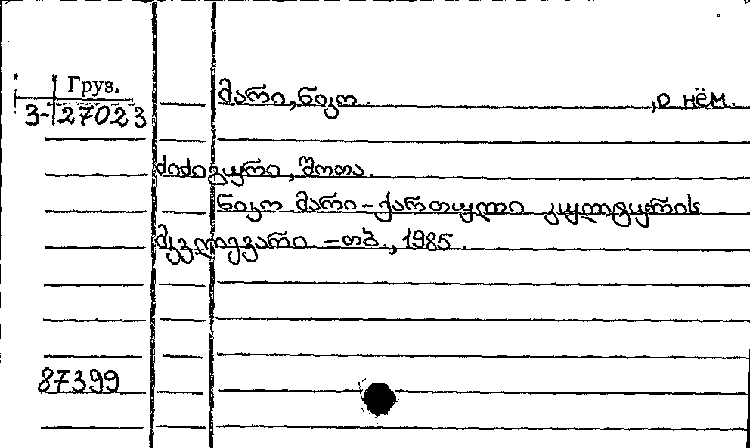 Груз.
მარი, ნიკო. , о нём.
3-27023
ძიძიგური, შოთა.
ნიკო მარი - ქართული კულტურის
მკვლევარი - თბ., 1985.
87399